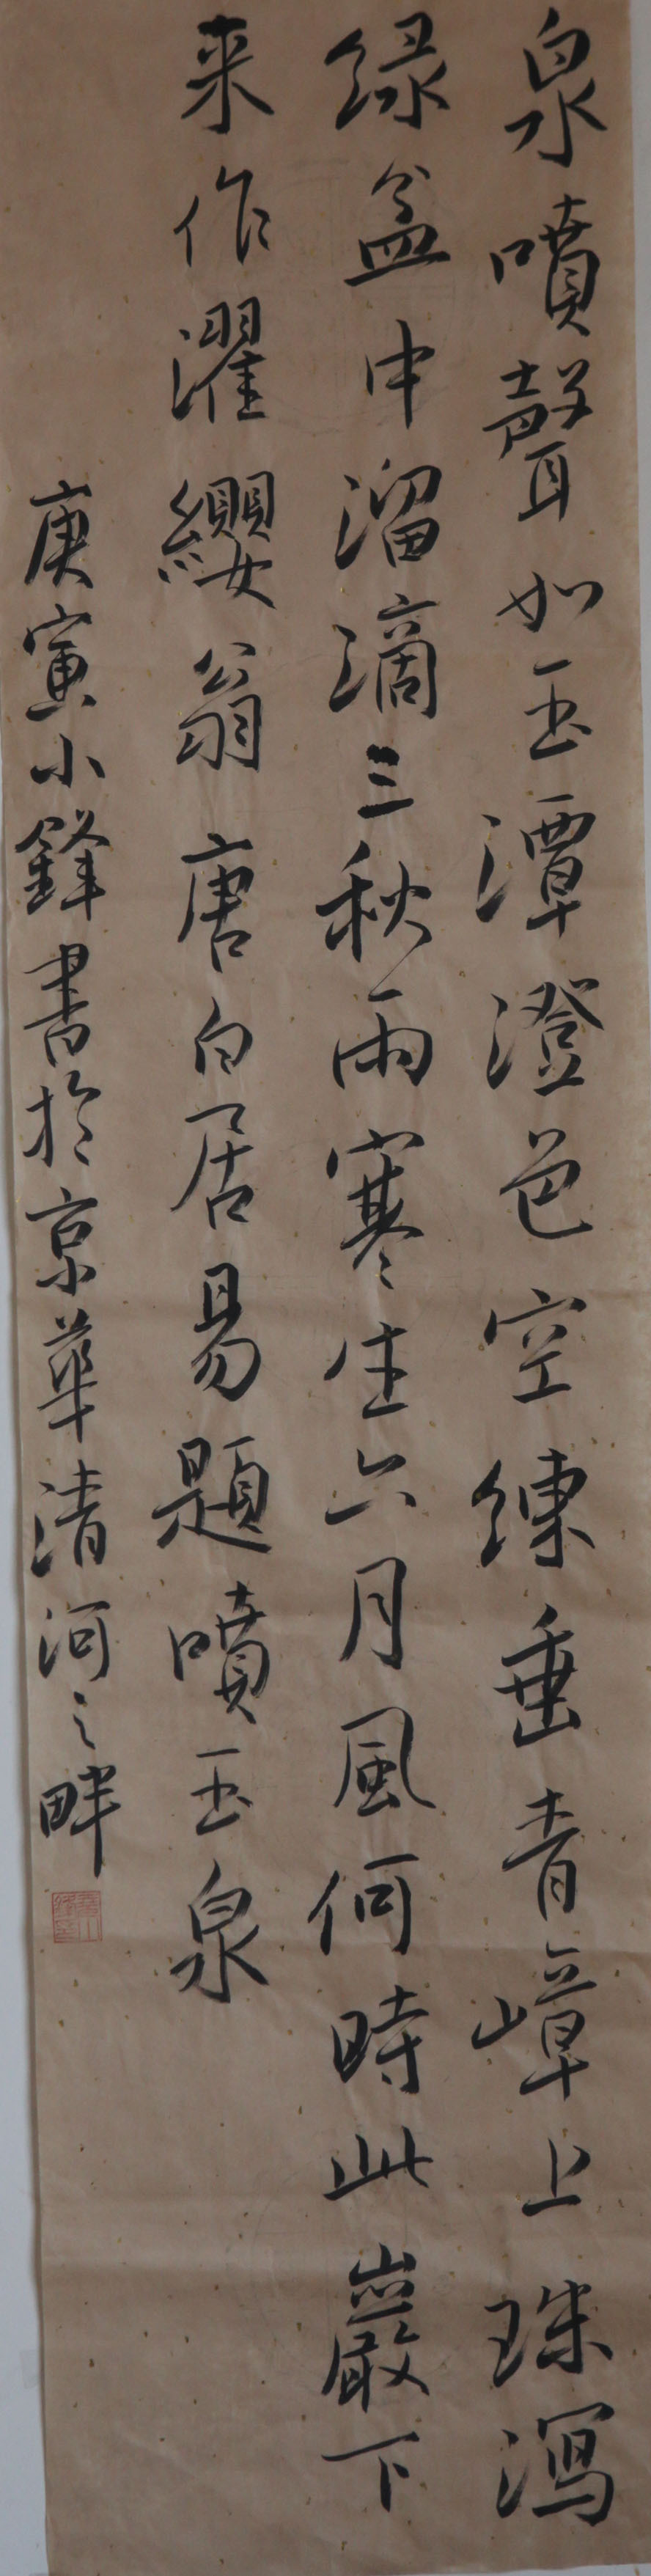 泉噴聲如玉潭澄色空練垂青嶂上珠瀉
緑盆中溜滴三秋雨寒生六月風何時此巖下
来作濯纓翁唐白居易題噴玉泉
庚寅小鋒書於京華清河之畔